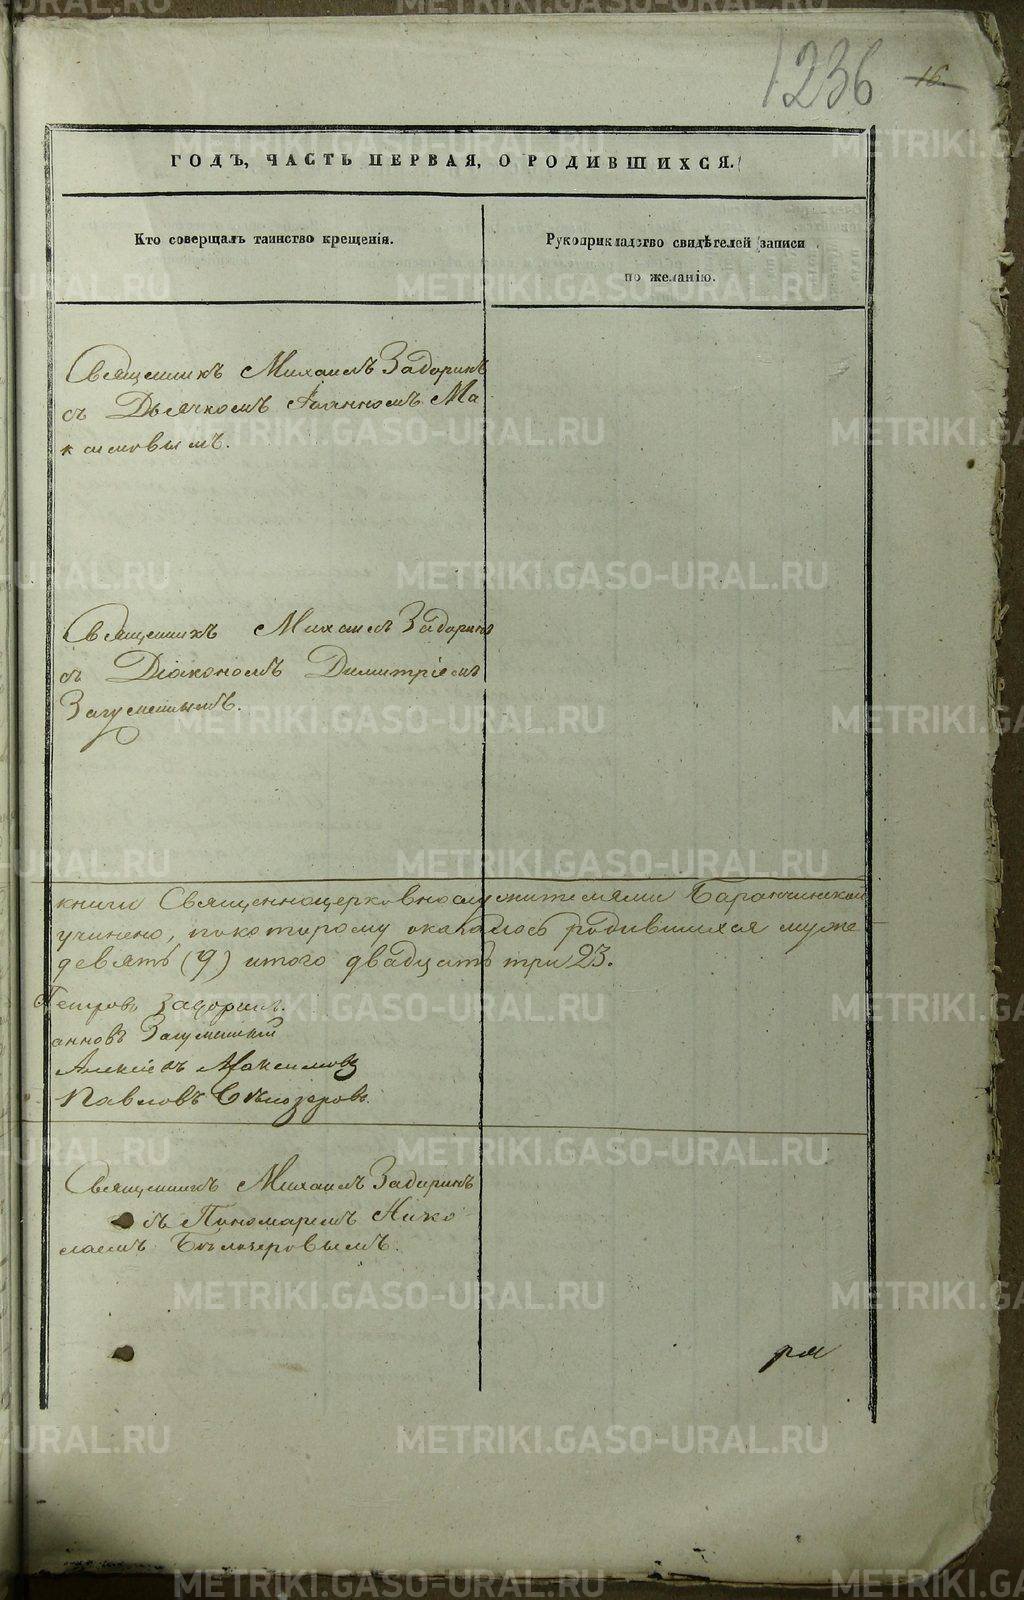 1236 16
ГОДЪ, ЧАСТЬ ПЕРВАЯ, О РОДИВШИХСЯ.
Кто совершалъ таинство крещенія.
Рукоприкладство свидѣтелей записи
по желанію.
Священникъ Михаилъ Задоринъ
съ Дьячкомъ Іоанномъ Ма-
ксимовымъ.
Священникъ Михаилъ Задоринъ
съ Діакономъ Димитріемъ
Загуменнымъ.
книги Священноцерковнослужителями Баранчинской
учинено, по которому оказалось родившихся муже-
девять (9) итого двадцать три 23.
Петровъ Задоринъ.
анновъ Загуменный
Алексѣевъ Максимовъ
Павловъ Бѣлозеровъ.
Священникъ Михаилъ Задоринъ
съ Пономаремъ Нико-
лаемъ Бѣлозеровымъ.
METRIKI.GASO-URAL.RU